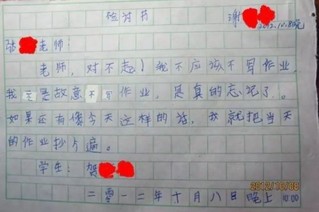 检讨书
2012.10.8晚
老师:
老师,对不起!我不应该不写作业,
我是故意不写作业,是真的忘记了。
如果还有像今天这样的话,我就把当天
的作业抄片遍。
学生:贺
二零一二年十月八日晚上 10:00
2012/10/08